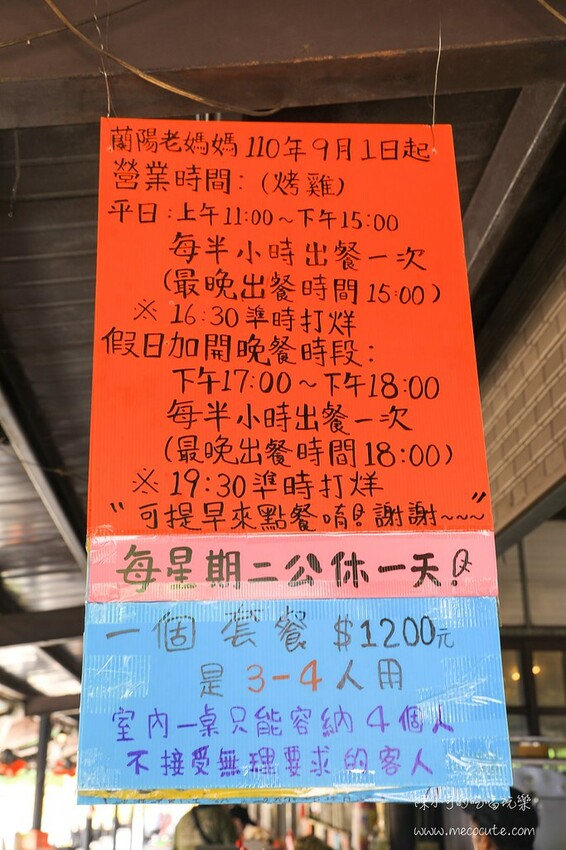 蘭陽老媽媽 110年9月1日起
營業時間：(烤雞)
平日：上午11:00～下午15:00
每半小時出餐一次
(最晚出餐時間15:00)
※ 16:30準時打烊
假日加開晚餐時段：
下午17:00～下午18:00
每半小時出餐一次
(最晚出餐時間18:00)
※ 19:30準時打烊
"可提早來點餐唷!謝謝~~~"
每星期二公休一天!
一個套餐 $1200元
是3-4人用
室內一桌只能容納4個人
不接受無理要求的客人
www.mecocute.com